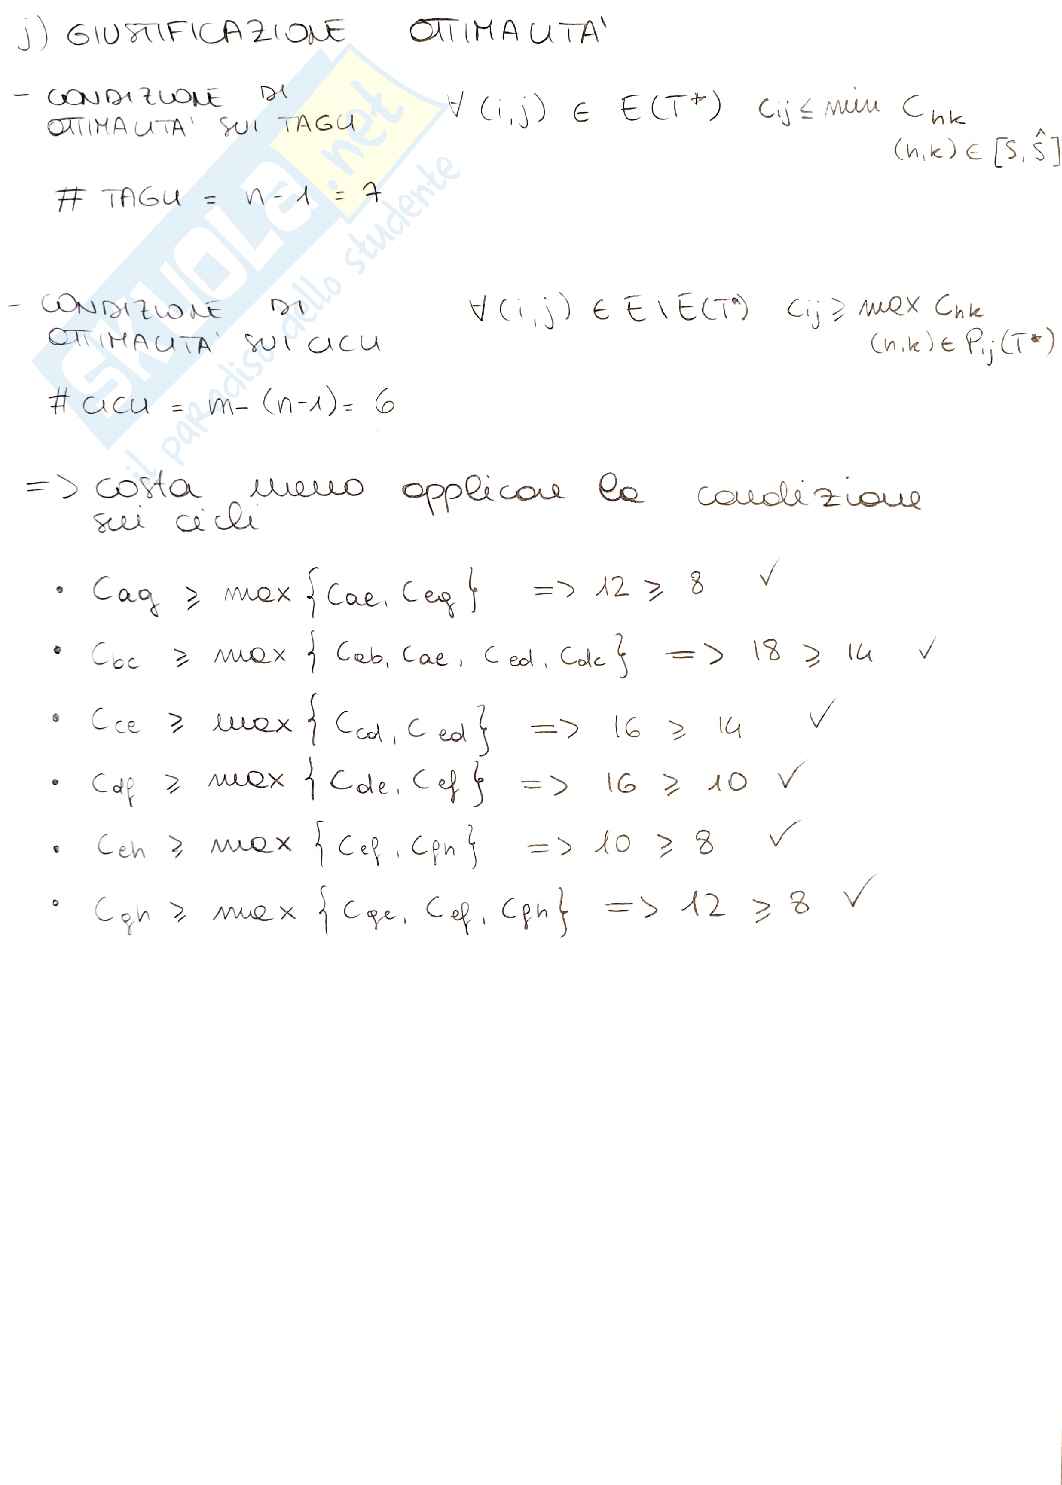 j) GIUSTIFICAZIONE OTTIMALITA'
- CONDIZIONE DI ∀ (i,j) ∈ E(T*) cij ≤ min Chk
OTTIMALITA' SUI TAGLI (h,k) ∈ [S,Ŝ]
# TAGLI = n-1 = 7
- CONDIZIONE DI ∀(i,j) ∈ E\E(T*) cij ≥ max Chk
OTTIMALITA' SUI CICLI (h,k) ∈ Pij(T*)
# CICLI = m-(n-1) = 6
=> costa meno applicare la condizione
sui cicli
• Cag ≥ max{Cae, Ceg} => 12 ≥ 8 ✓
• Cbc ≥ max{Cab, Cae, Ced, Cdc} => 18 ≥ 14 ✓
• Cce ≥ max{Ccd, Ced} => 16 ≥ 14 ✓
• Cdf ≥ max{Cde, Cef} => 16 ≥ 10 ✓
• Ceh ≥ max{Cef, Cfh} => 10 ≥ 8 ✓
• Cgh ≥ max{Cge, Cef, Cfh} => 12 ≥ 8 ✓
SKUOLA.net
il paradiso dello studente